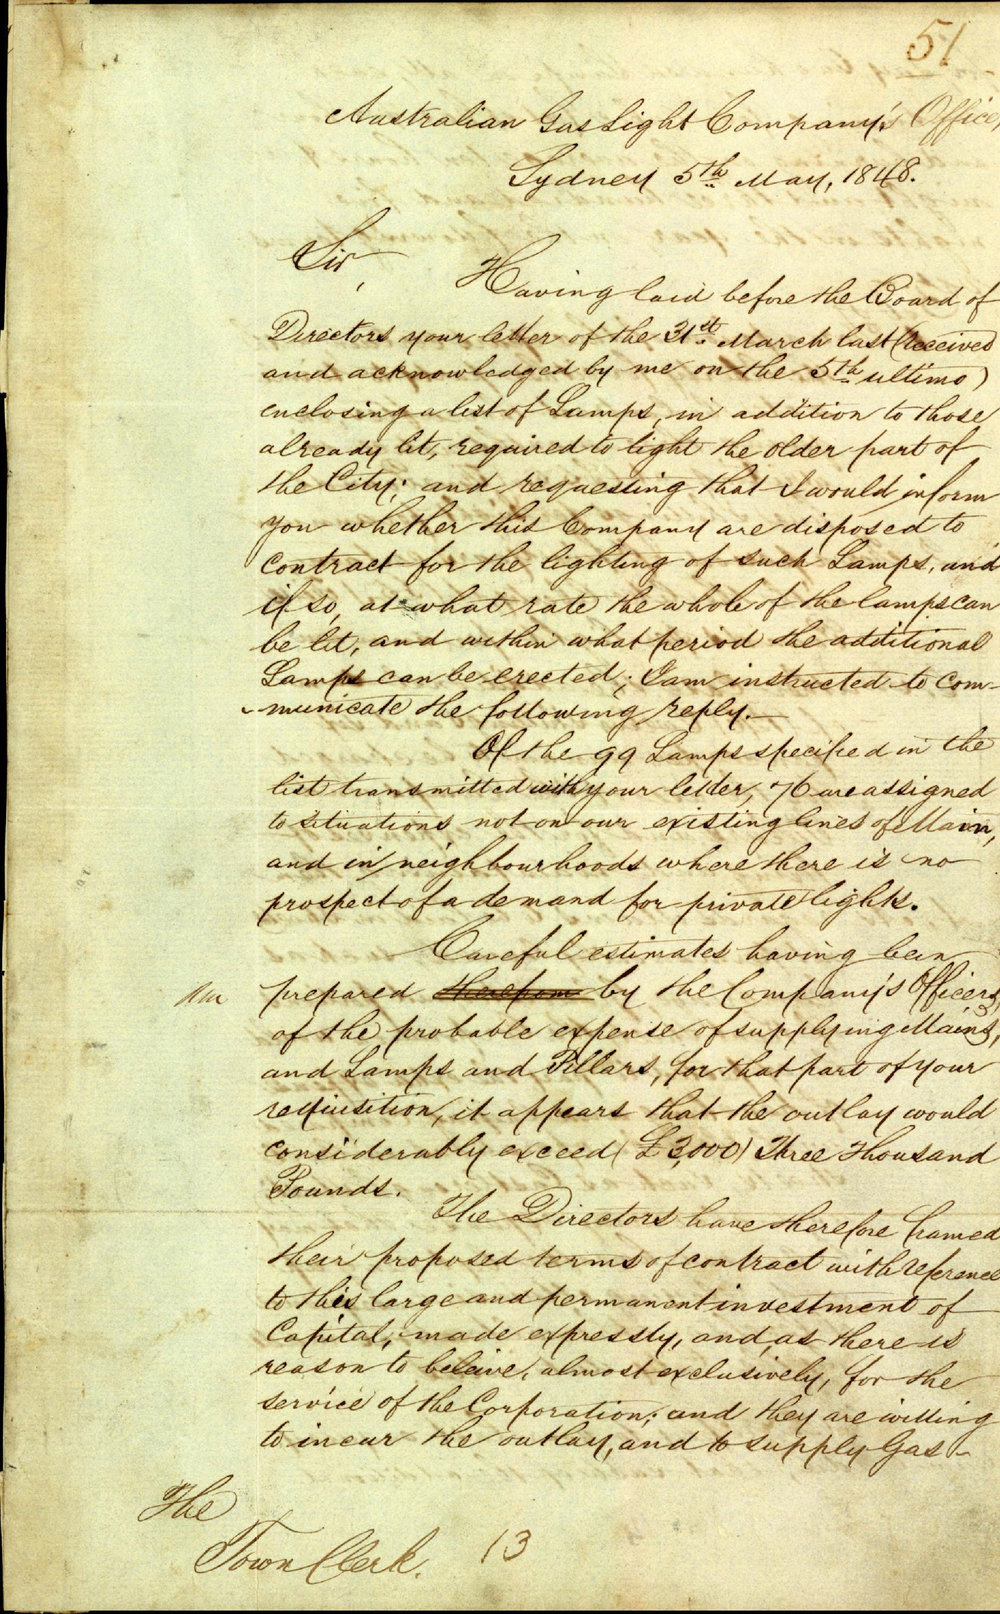 51
Australian Gas Light Company's Office,
Sydney 5th May, 1848.
Sir,
Having laid before the Board of
Directors your letter of the 31st March last (received
and acknowledged by me on the 5th ultimo)
enclosing a list of Lamps, in addition to those
already lit, required to light the older part of
the City; and requesting that I would inform
you whether this Company are disposed to
contract for the lighting of such Lamps, and
if so, at what rate the whole of the lamps can
be lit, and within what period the additional
Lamps can be erected; I am instructed to com-
-municate the following reply.—
Of the 99 Lamps specified in the
list transmitted with your letter, 76 are assigned
to situations not on our existing lines of Main,
and in neighbourhoods where there is no
prospect of a demand for private lights.
Careful estimates having been
prepared therefrom by the Company's Officers,
of the probable expense of supplying Mains,
and Lamps and Pillars, for that part of your
requisition, it appears that the outlay would
considerably exceed (£3,000) Three Thousand
Pounds.
The Directors have therefore framed
their proposed terms of contract with reference
to this large and permanent investment of
Capital, made expressly, and, as there is
reason to beleive, almost exclusively, for the
service of the Corporation; and they are willing
to incur the outlay, and to supply Gas
The
Town Clerk.
13